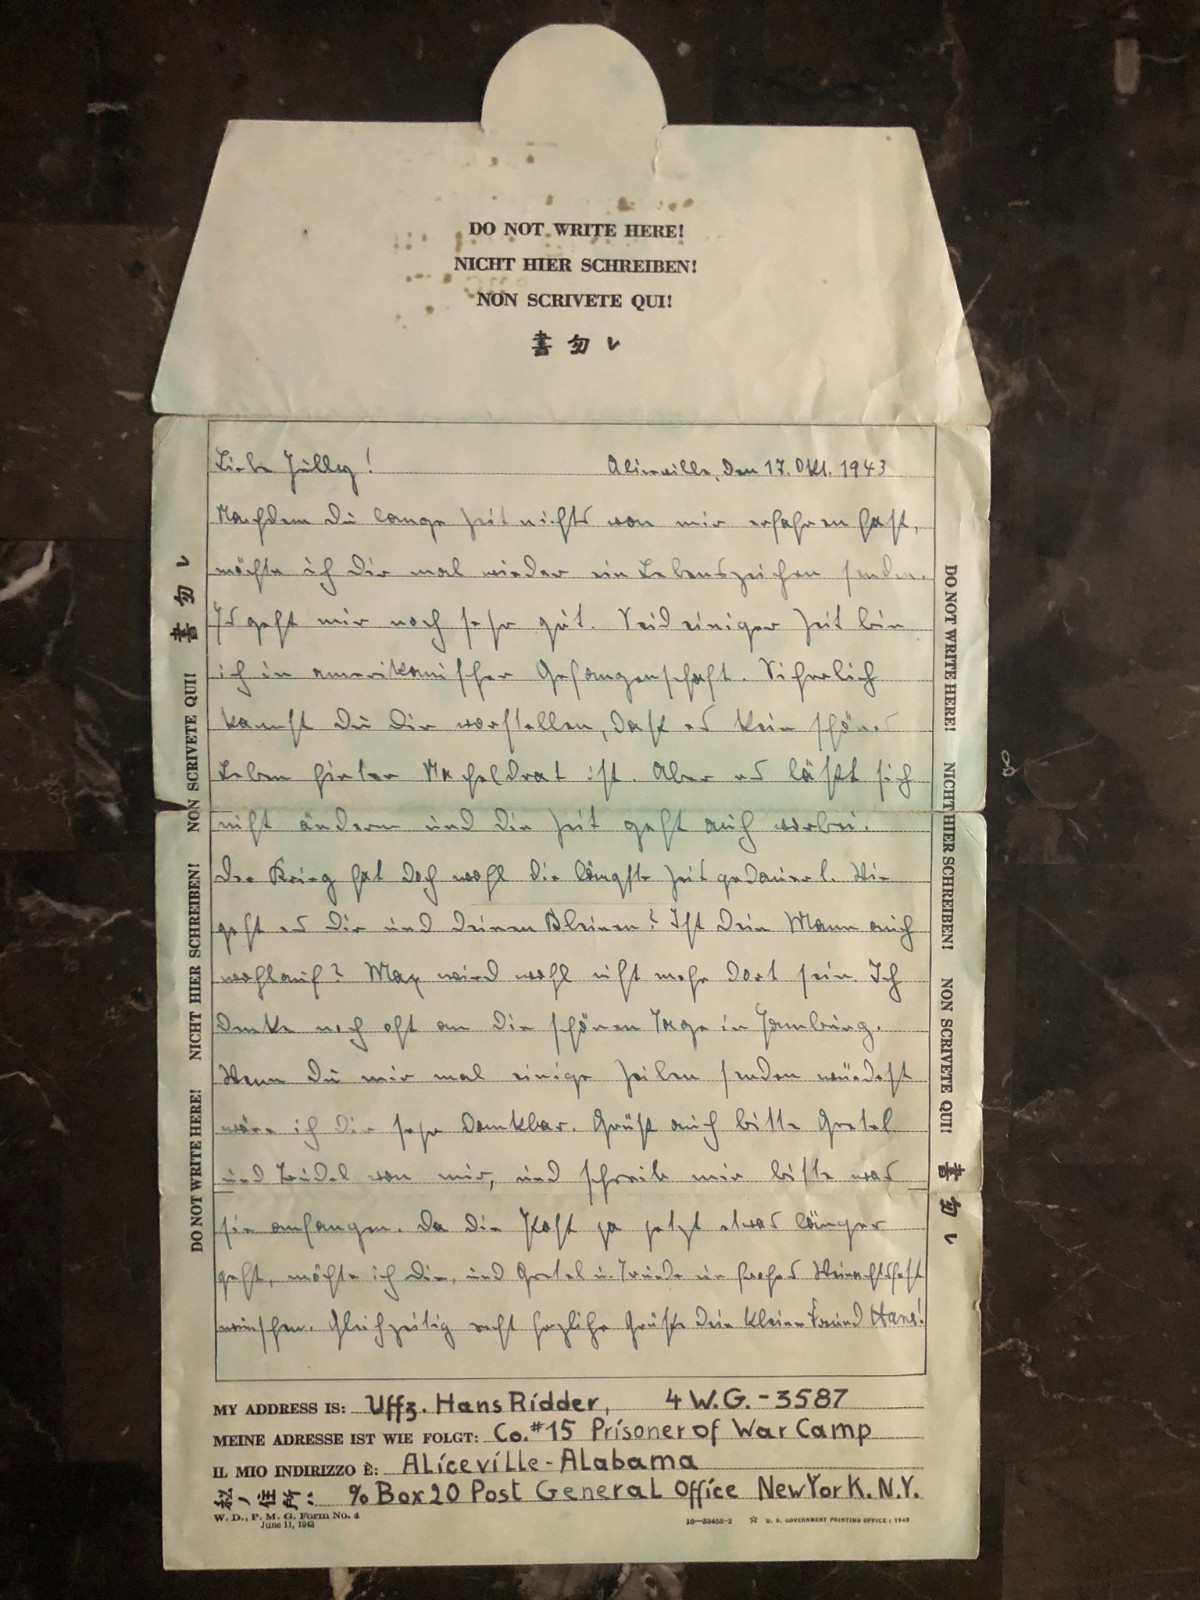 DO NOT WRITE HERE!
NICHT HIER SCHREIBEN!
NON SCRIVETE QUI!
書 勿 レ
Liebe Jülly! Aliceville, den 17. Okt. 1943
Nachdem Du lange Zeit nichts von mir erfahren hast,
möchte ich Dir mal wieder ein Lebenszeichen senden.
Es geht mir noch sehr gut. Seid einiger Zeit bin
ich in amerikanischer Gefangenschaft. Sicherlich
kannst Du Dir vorstellen, daß es kein schönes
Leben hinter Stacheldrat ist. Aber es läßt sich
nicht ändern und die Zeit geht auch vorbei.
Der Krieg hat doch wohl die längste Zeit gedauert. Wie
geht es Dir und deinen Kleinen? Ist Dein Mann auch
wohlauf? Max wird wohl nicht mehr dort sein. Ich
denke noch oft an die schönen Tage in Hamburg.
Wenn Du mir mal einige Zeilen senden würdest
wäre ich Dir sehr dankbar. Grüß auch bitte Gretel
und von mir, und schreib mir bitte was
sie anfangen. Da die Post ja jetzt etwas länger
geht, möchte ich Dir, und Gretel u. ein frohes Weinachtsfest
wünschen. Gleichzeitig recht herzliche Grüße dein kleiner Freund Hans!
MY ADDRESS IS: Uffz. Hans Ridder, 4 W.G. - 3587
MEINE ADRESSE IST WIE FOLGT: Co. #15 Prisoner of War Camp
IL MIO INDIRIZZO È: Aliceville - Alabama
私ノ住所: % Box 20 Post General Office New York. N.Y.
W. D., P. M. G. Form No. 4
June 11, 1943
16—33453-2 ☆ U. S. GOVERNMENT PRINTING OFFICE : 1943
DO NOT WRITE HERE! NICHT HIER SCHREIBEN! NON SCRIVETE QUI! 書 勿 レ
DO NOT WRITE HERE! NICHT HIER SCHREIBEN! NON SCRIVETE QUI! 書 勿 レ